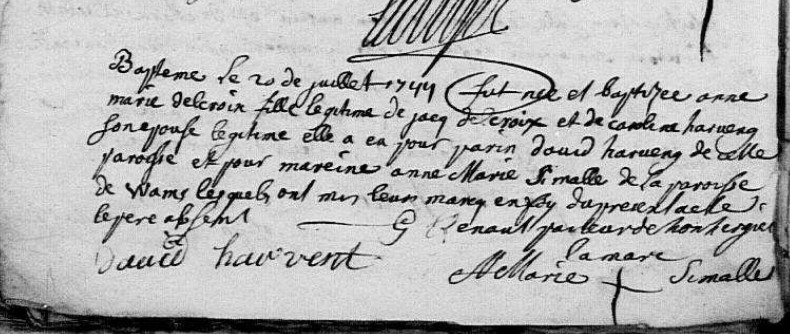 Bapteme le 20 de juillet 1744 fut nee et baptizee anne
marie delcroix fille legitime de jacq delcroix et de caroline harveng
son epouse legitime elle a eu pour parin david harveng de cette
paroisse et pour mareine anne Marie Simalle de la paroisse
de Wams lesquels ont mis leur marcq en foy du present acte
le pere absent G Renaut pasteur de hon hergies
la marc
david harvent AMarie + Simalle